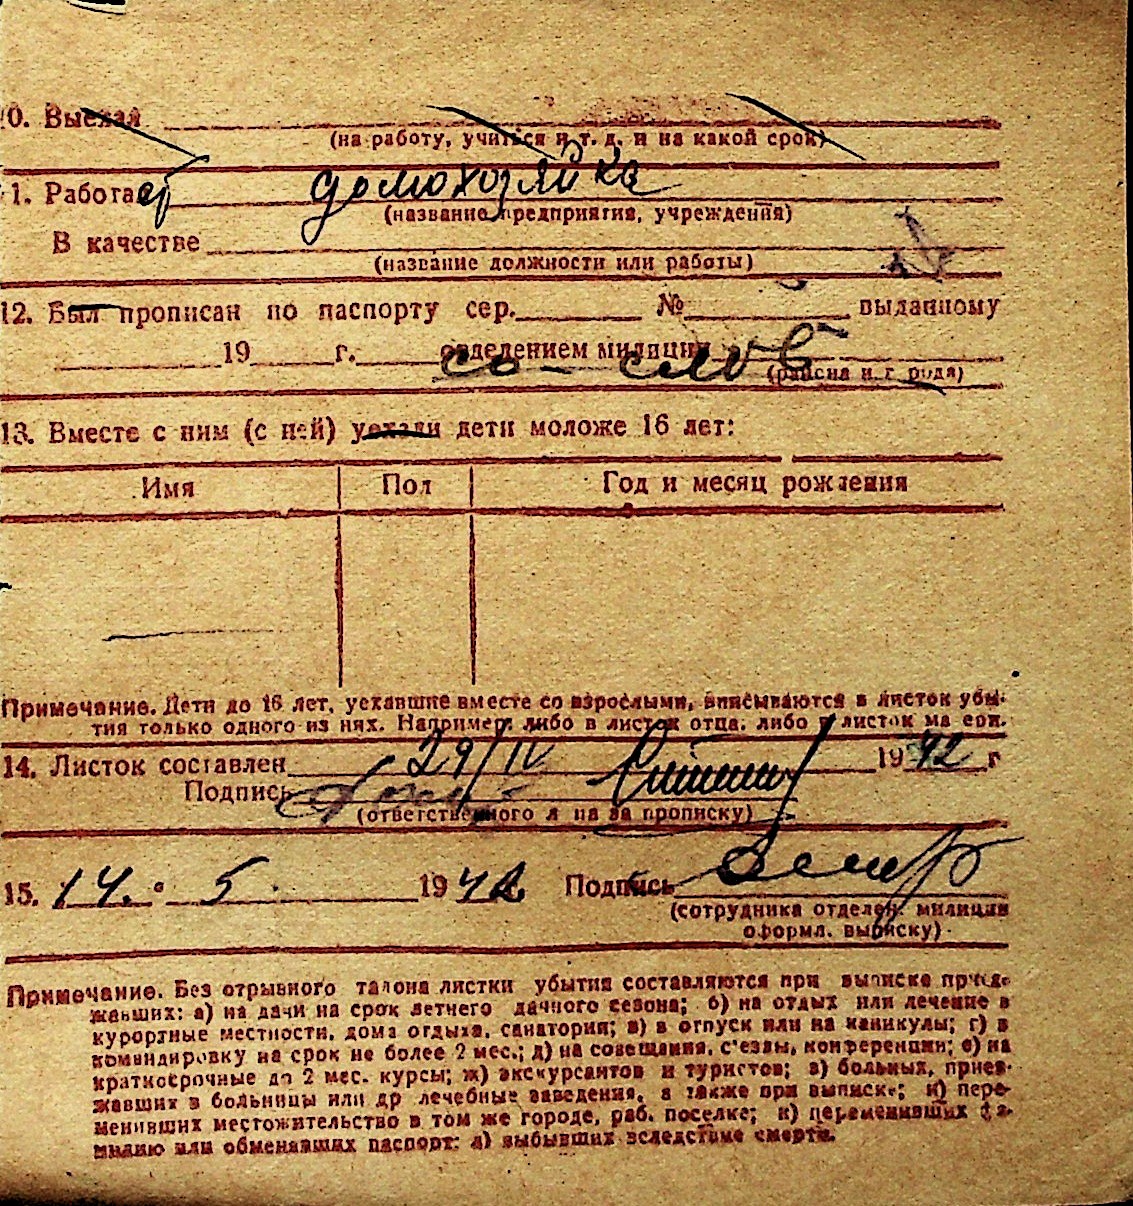 10. Выехал
(на работу, учиться и т. д. и на какой срок)
11. Работает домохозяйка
(название предприятия, учреждения)
В качестве
(название должности или работы)
12. Был прописан по паспорту сер. № выданному
19 г. отделением милиции
со слов
(района и города)
13. Вместе с ним (с ней) уехали дети моложе 16 лет:
Имя Пол Год и месяц рождения
Примечание. Дети до 16 лет, уехавшие вместе со взрослыми, вписываются в листок убы-
тия только одного из них. Например: либо в листок отца, либо в листок матери.
14. Листок составлен 29/IV 1942 г
Подпись
(ответственного лица за прописку)
15. 14. 5. 1942 Подпись
(сотрудника отделен. милиции
оформл. выписку)
Примечание. Без отрывного талона листки убытия составляются при выписке приез-
жавших: а) на дачи на срок летнего дачного сезона; б) на отдых или лечение в
курортные местности, дома отдыха, санатории; в) в отпуск или на каникулы; г) в
командировку на срок не более 2 мес.; д) на совещания, с'езды, конференции; е) на
краткосрочные до 2 мес. курсы; ж) экскурсантов и туристов; з) больных, приез-
жавших в больницы или др лечебные заведения, а также при выписке; и) пере-
менивших местожительство в том же городе, раб. поселке; к) переменивших фа-
милию или обменявших паспорт: л) выбывших вследствие смерти.